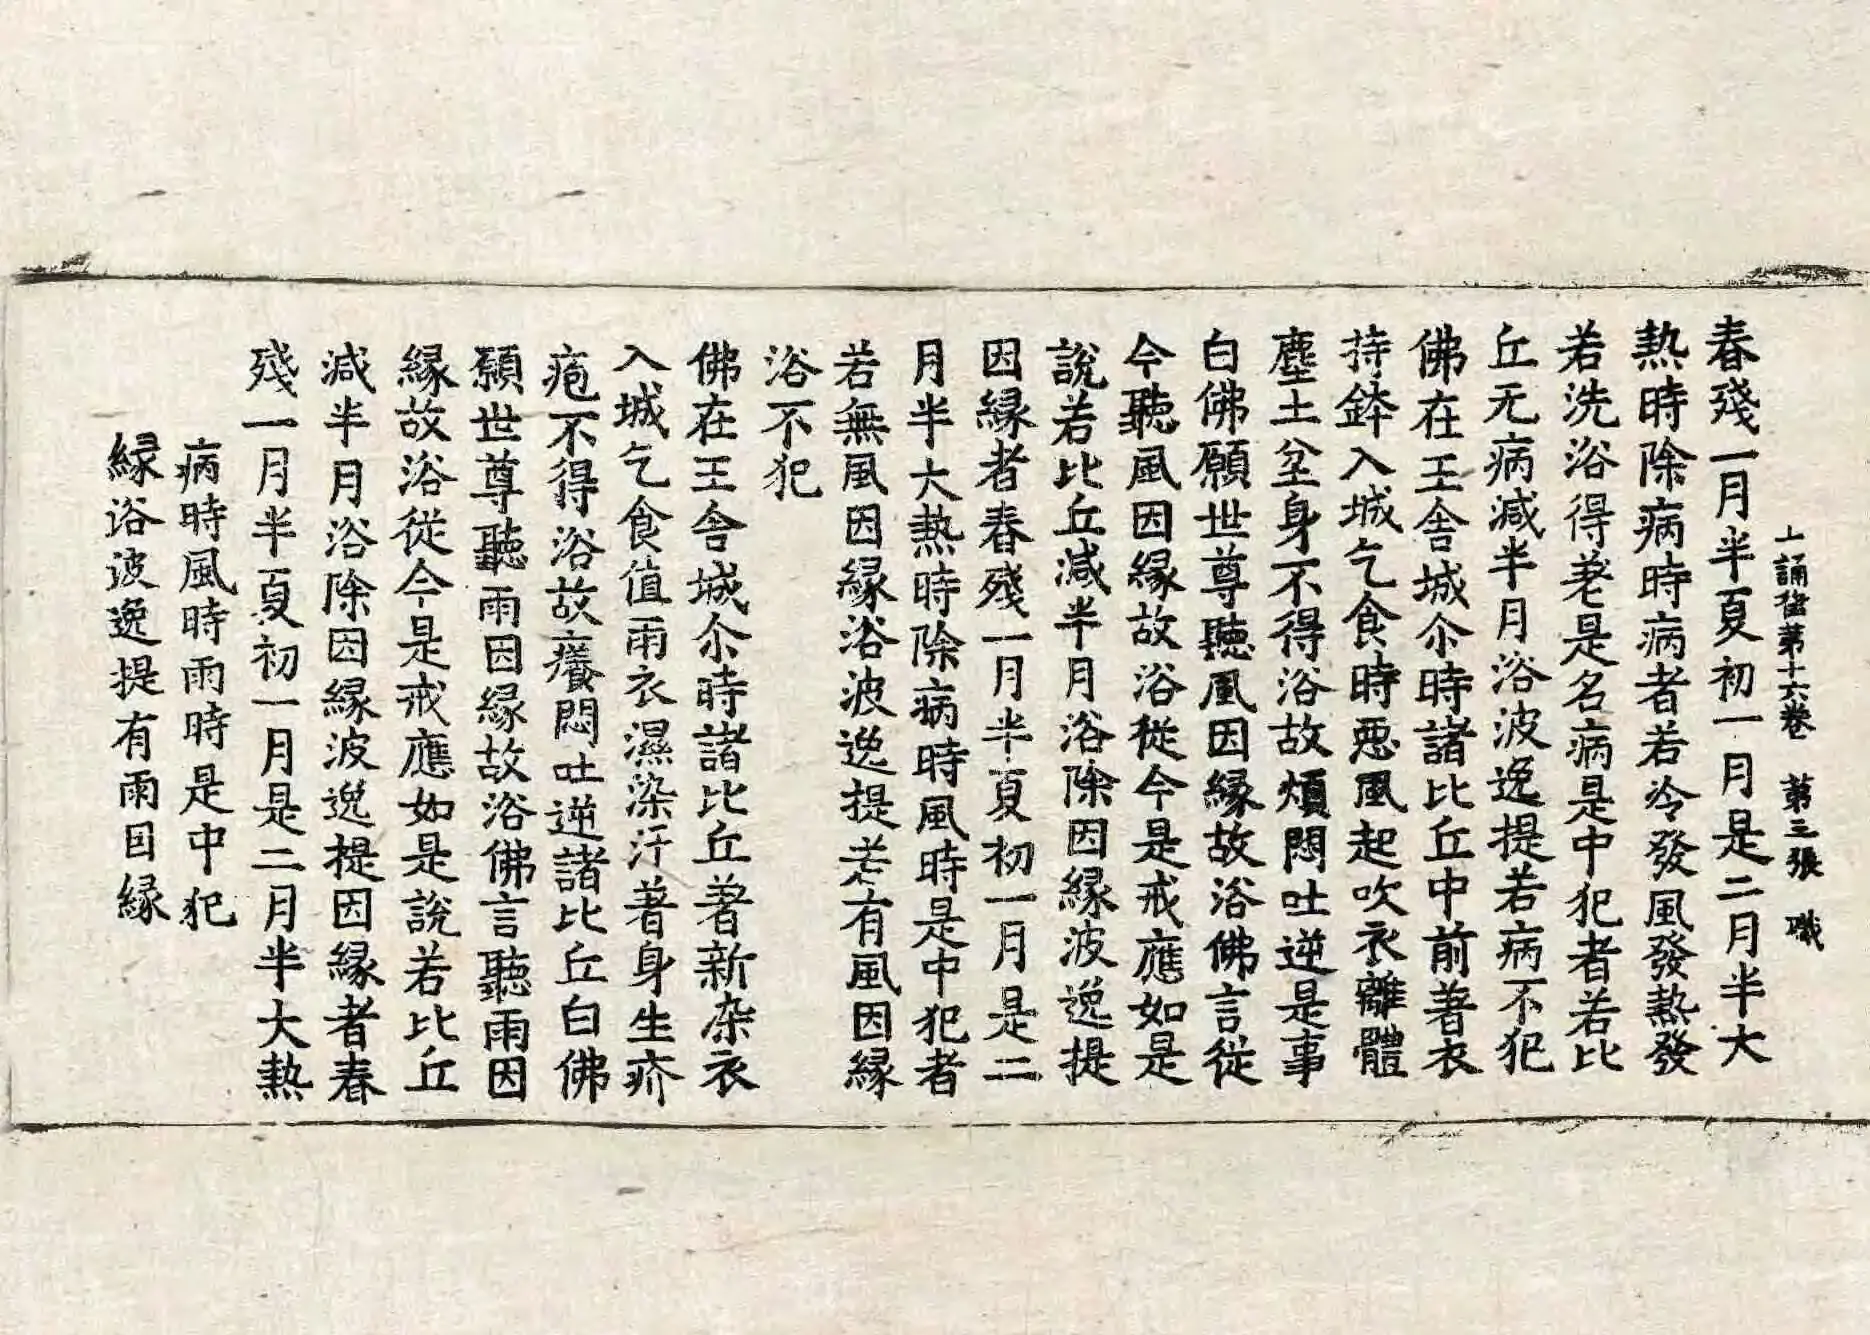 十誦律第十六卷 第三張 職
春殘一月半夏初一月是二月半大
熱時除病時病者若冷發風發熱發
若洗浴得差是名病是中犯者若比
丘无病減半月浴波逸提若病不犯
佛在王舍城尒時諸比丘中前著衣
持鉢入城乞食時惡風起吹衣離體
塵土坌身不得浴故煩悶吐逆是事
白佛願世尊聽風因縁故浴佛言從
今聽風因縁故浴從今是戒應如是
說若比丘減半月浴除因縁波逸提
因縁者春殘一月半夏初一月是二
月半大熱時除病時風時是中犯者
若無風因縁浴波逸提若有風因縁
浴不犯
佛在王舍城尒時諸比丘著新染衣
入城乞食值雨衣濕染汙著身生疥
疱不得浴故癢悶吐逆諸比丘白佛
願世尊聽雨因縁故浴佛言聽雨因
縁故浴從今是戒應如是說若比丘
減半月浴除因縁波逸提因縁者春
殘一月半夏初一月是二月半大熱
病時風時雨時是中犯
縁浴波逸提有雨因縁